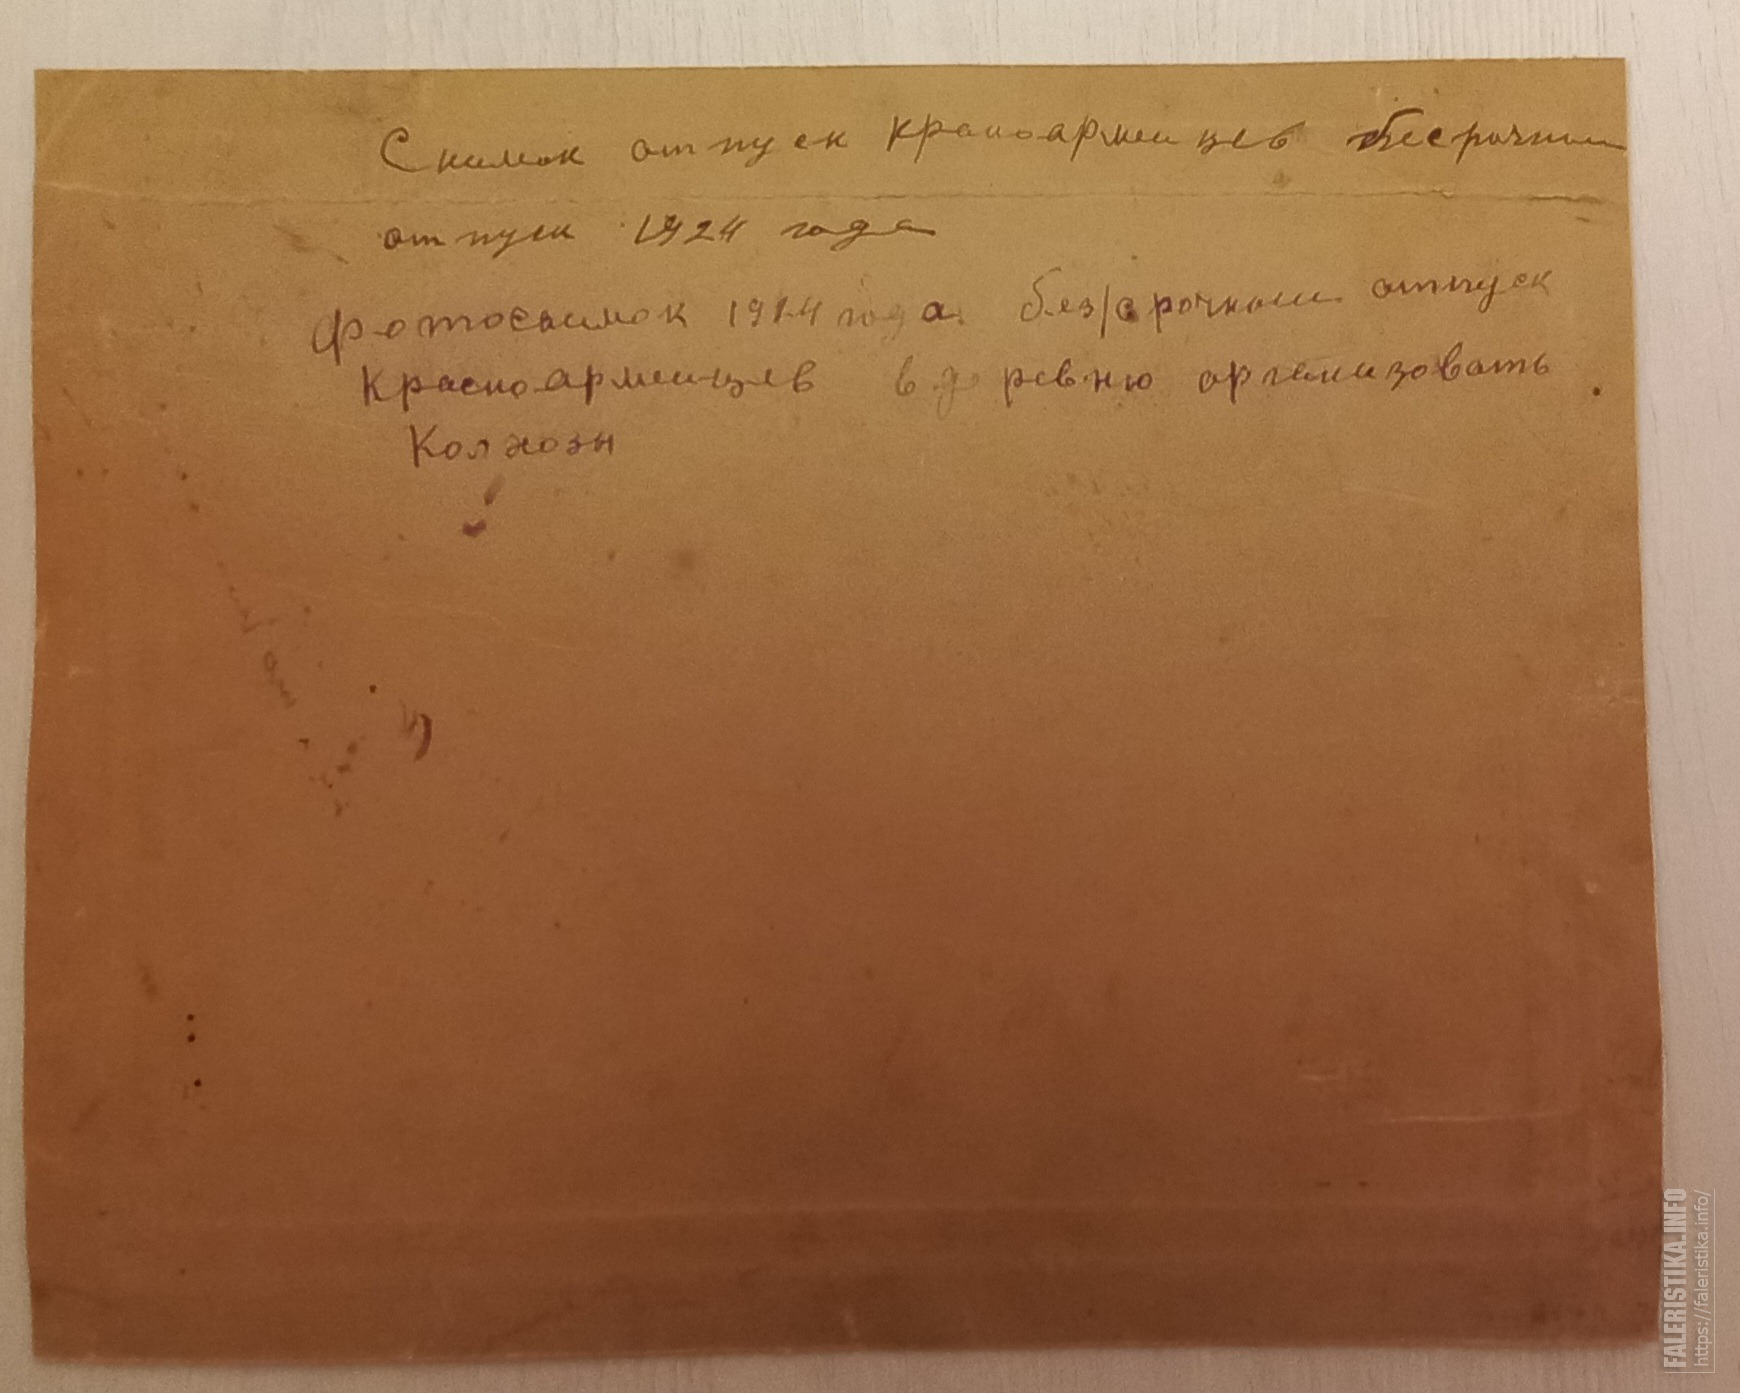 Снимок отпуск красноармейцев бесрочном
отпуск 1924 года
Фотоснимок 1924 года без/срочном отпуск
Красноармейцев в деревню организовать
Колхозы
FALERISTIKA.INFO
https://faleristika.info/